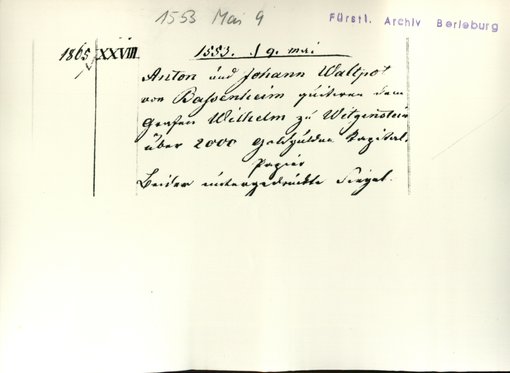 1553 Mai 9
Fürstl. Archiv Berleburg
1865 XXVIII. 1553. 9. Mai
Anton und Johann Waltpot
von Bassenheim quitieren dem
Grafen Wilhelm zu Witgenstein
über 2000 Goldgulden Kapital.
Papier
Beider untergedrückte Siegel.